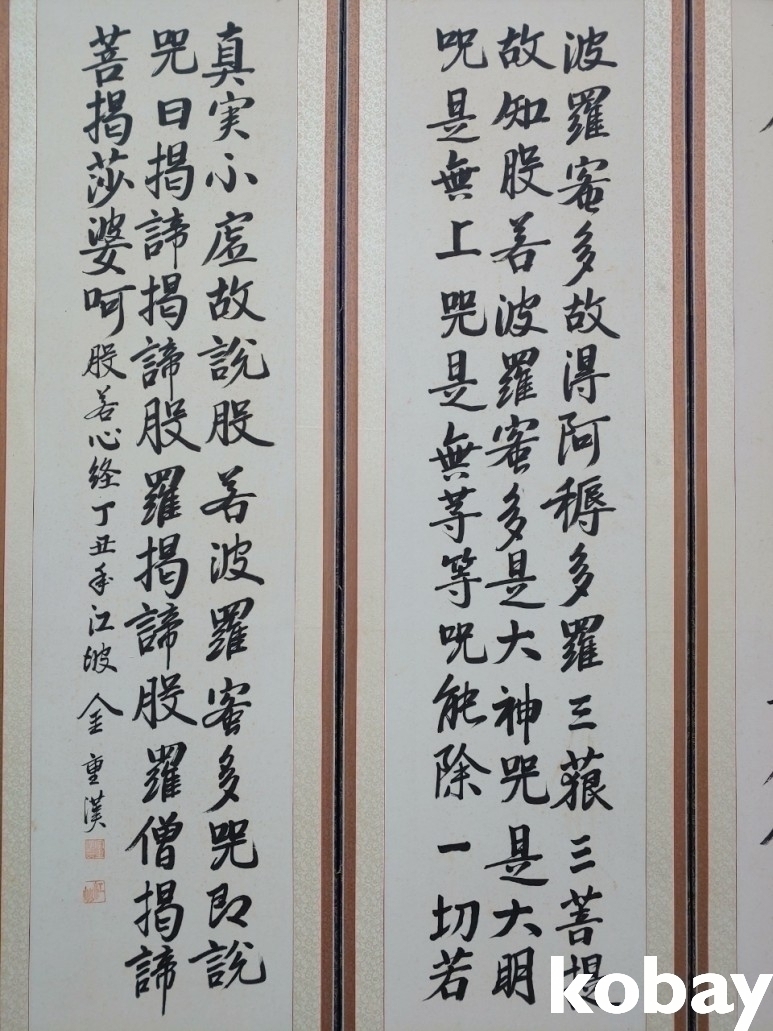 波羅蜜多故得阿耨多羅三藐三菩提
故知般若波羅蜜多是大神咒是大明
呪是無上咒是無等等呪能除一切若
真実不虛故說般若波羅蜜多咒即說
咒曰揭諦揭諦般羅揭諦般羅僧揭諦
菩揭莎婆呵般若心経丁丑年江坡金重漢
kobay